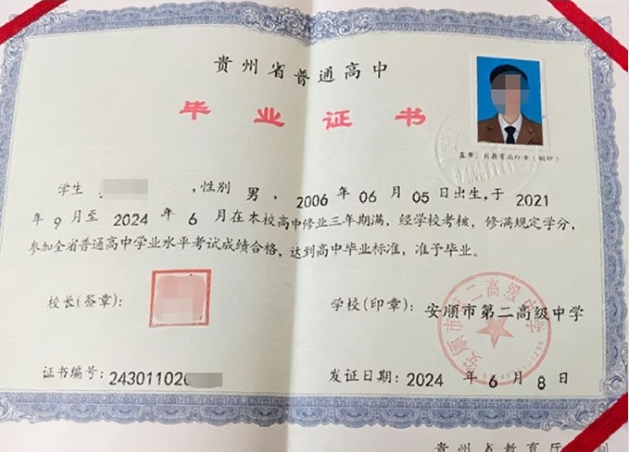 贵州省普通高中
毕业证书
盖章：
学生 ，性别 男 ，2006 年 06 月 05 日出生，于 2021
年 9 月至 2024 年 6 月在本校高中修业三年期满，经学校考核，修满规定学分，
参加全省普通高中学业水平考试成绩合格，达到高中毕业标准，准予毕业。
校长(签章)：
学校(印章)：安顺市第二高级中学
安顺市第二高级中学
证书编号：243011020
发证日期：2024 年 6 月 8 日
贵州省教育厅 制